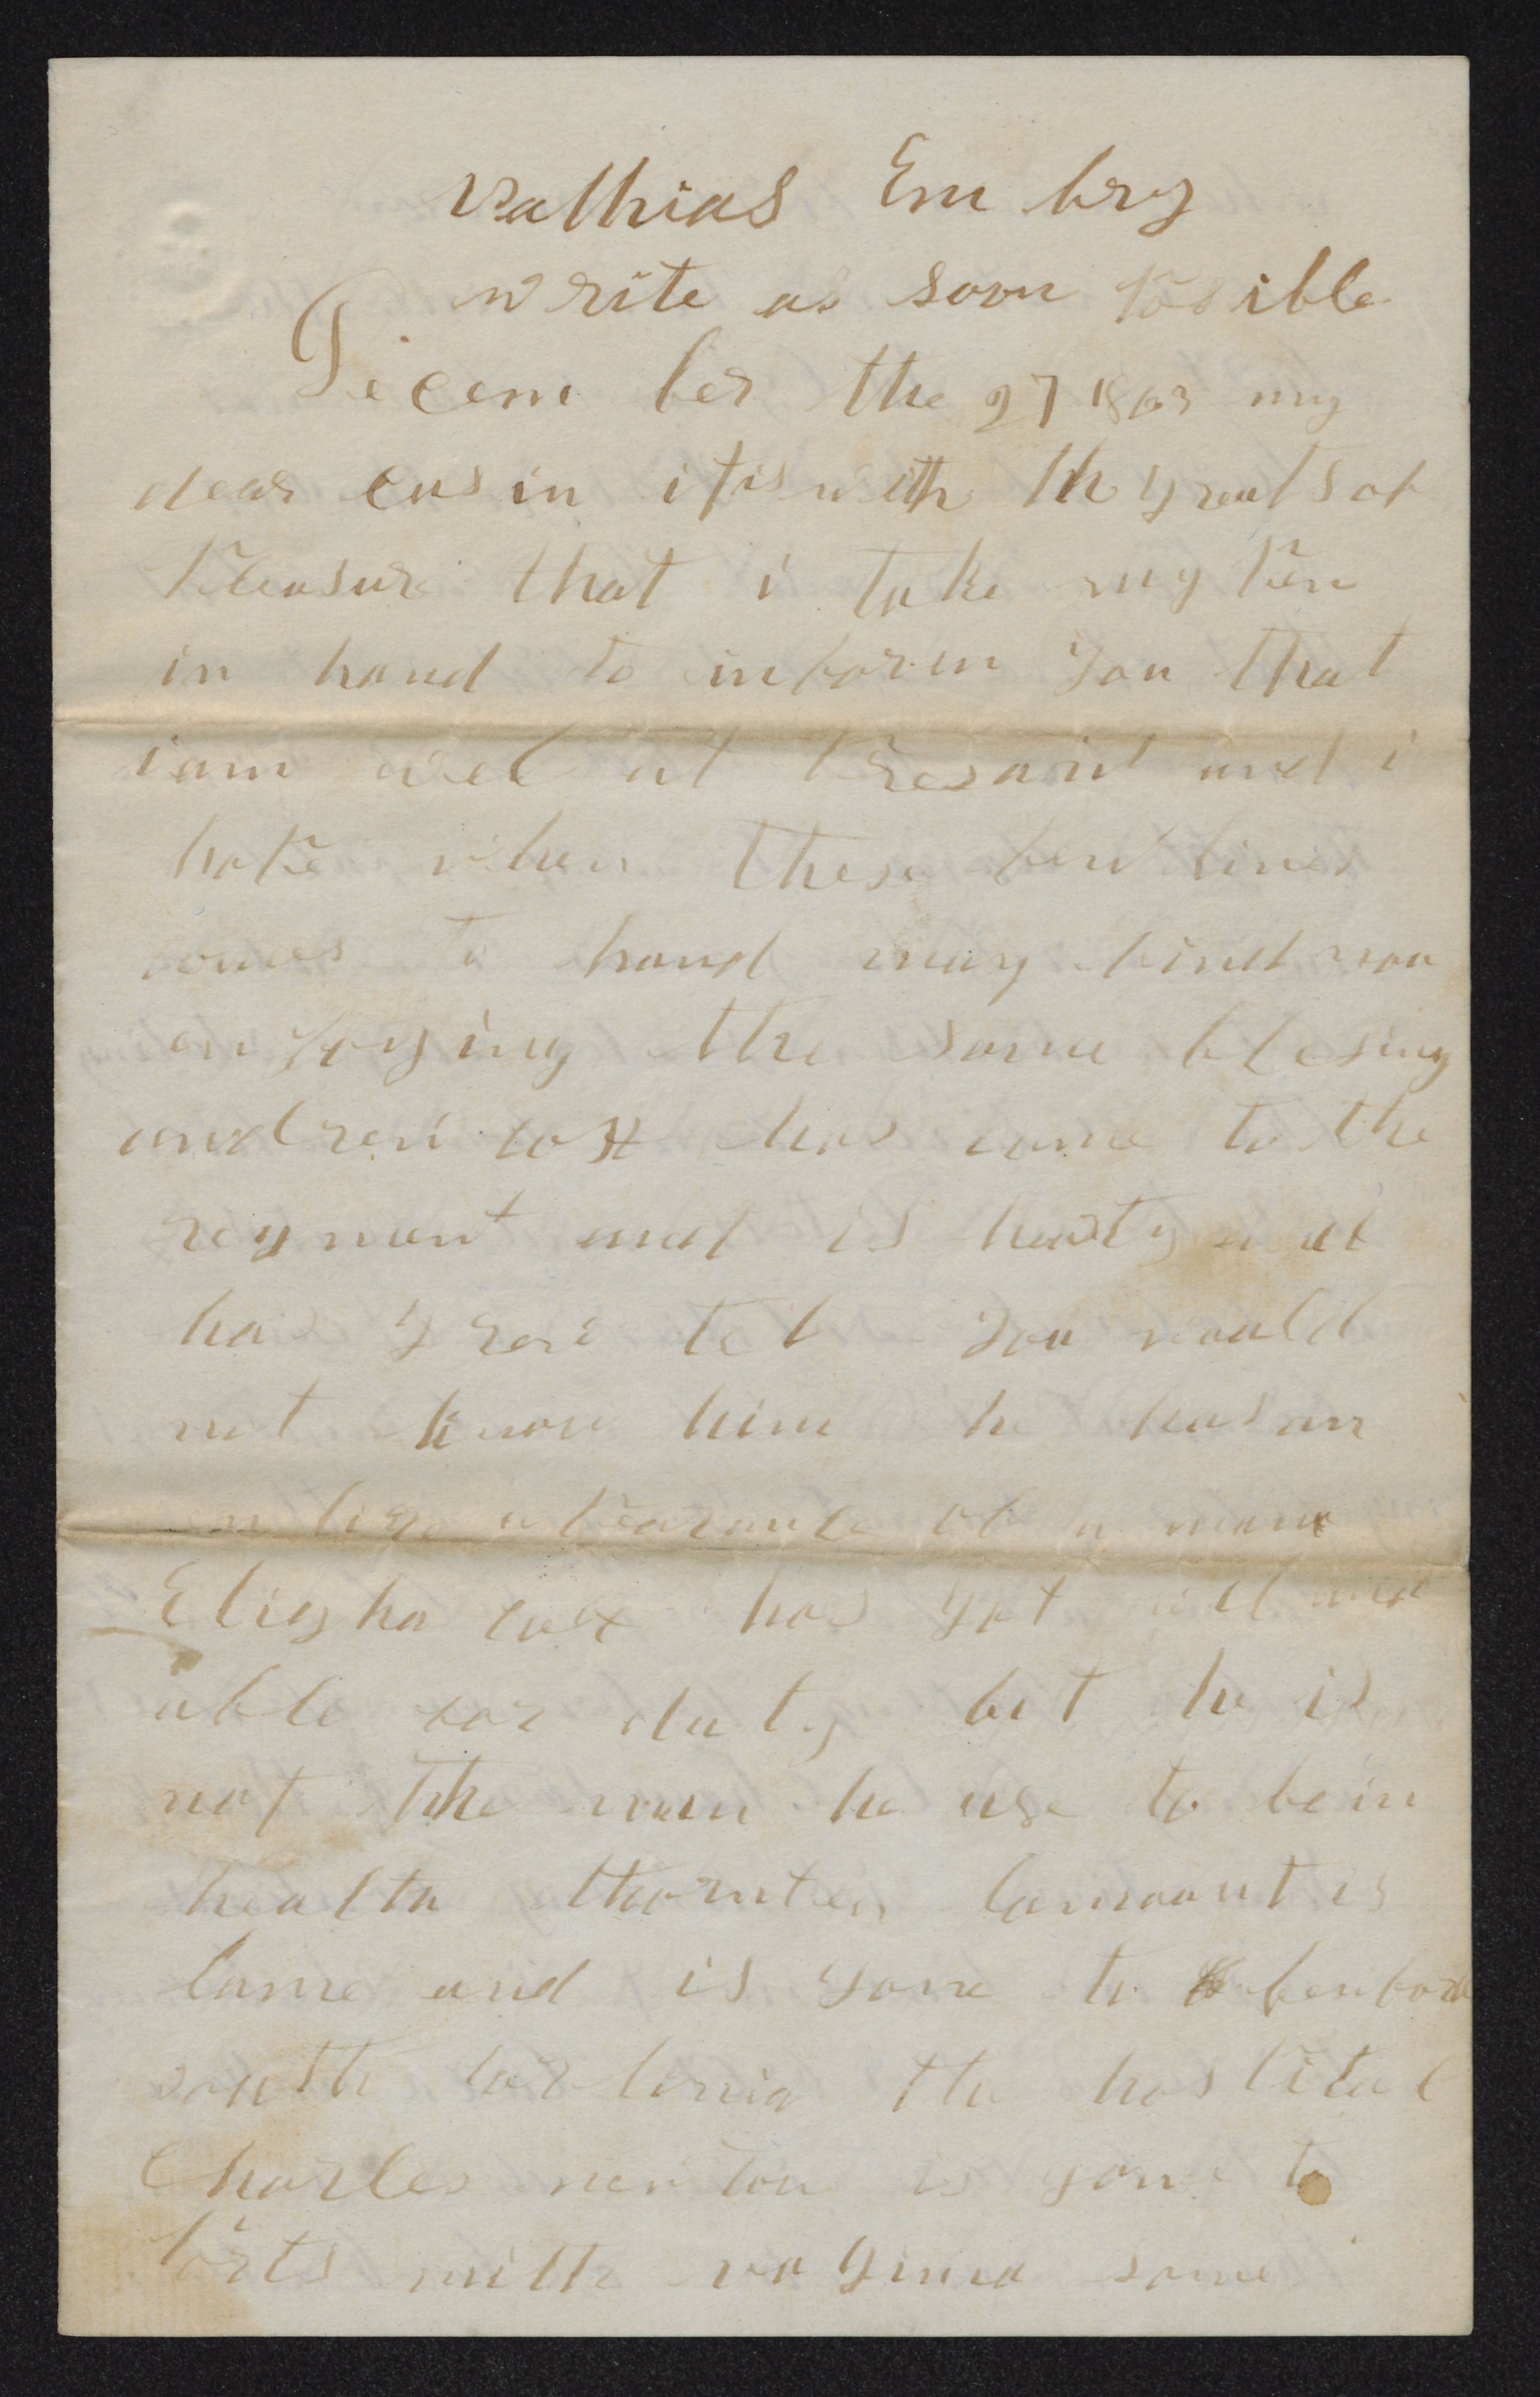 Mathias Em bry
write as soon posible
Decem ber the 27 1863 my
dear cusin it is with th greatsot
pleasure that i take my pen
in hand to inform you that
i am wel at presant and i
hope when these few lines
comes to hand may find you
enjoying the same blesing
and cox has come to the
regment and is hearty
has you would
not know him he has an
apearance of a man
Eligha cox has got wel and
able for duty but he is
not the man he use to be in
health thornten lamount is
lame and is gone to
south the hospital
Charles newton is gone to
ports mith va some